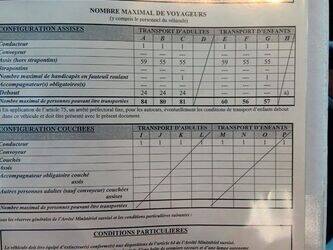 NOMBRE MAXIMAL DE VOYAGEURS
(y compris le personnel du véhicule)
CONFIGURATION ASSISES TRANSPORT D'ADULTES TRANSPORT D'ENFANTS
A B C D E F G H
Conducteur 1 1 1 1 1 1
Convoyeur --- --- --- --- --- ---
Assis (hors strapontins) 59 55 55 59 55 55
Strapontins --- --- --- --- --- ---
Nombre maximal de handicapés en fauteuil roulant --- --- --- --- 1
Accompagnateur(s) obligatoire(s) --- --- --- --- --- ---
Debout 24 24 24 a)
Nombre maximal de personnes pouvant être transportées 84 80 81 60 56 57
) En application de l'article 75, un arrêté préfectoral fixe, pour les autocars, éventuellement les conditions de transport d'enfants debout
dans ce véhicule et doit être présenté avec le présent document
CONFIGURATION COUCHEES TRANSPORT D'ADULTES TRANSPORT D'ENFANTS
I J K L M N O P
Conducteur
Convoyeur
Couchés
Assis
Accompagnateur obligatoire couché
assis
Autres personnes adultes (sauf convoyeur) couchées
assises
Nombre maximal de personnes pouvant être transportées
sous les réserves générales de l'Arrêté Ministériel susvisé et les conditions particulières suivantes :
CONDITIONS PARTICULIERES
véhicule doit être équipé d'extincteurs conformément aux dispositions de l'article 64 de l'Arrêté Ministériel susvisé.